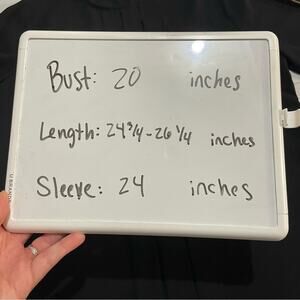 Bust: 20 inches
Length: 24 3/4 - 26 1/4 inches
Sleeve: 24 inches